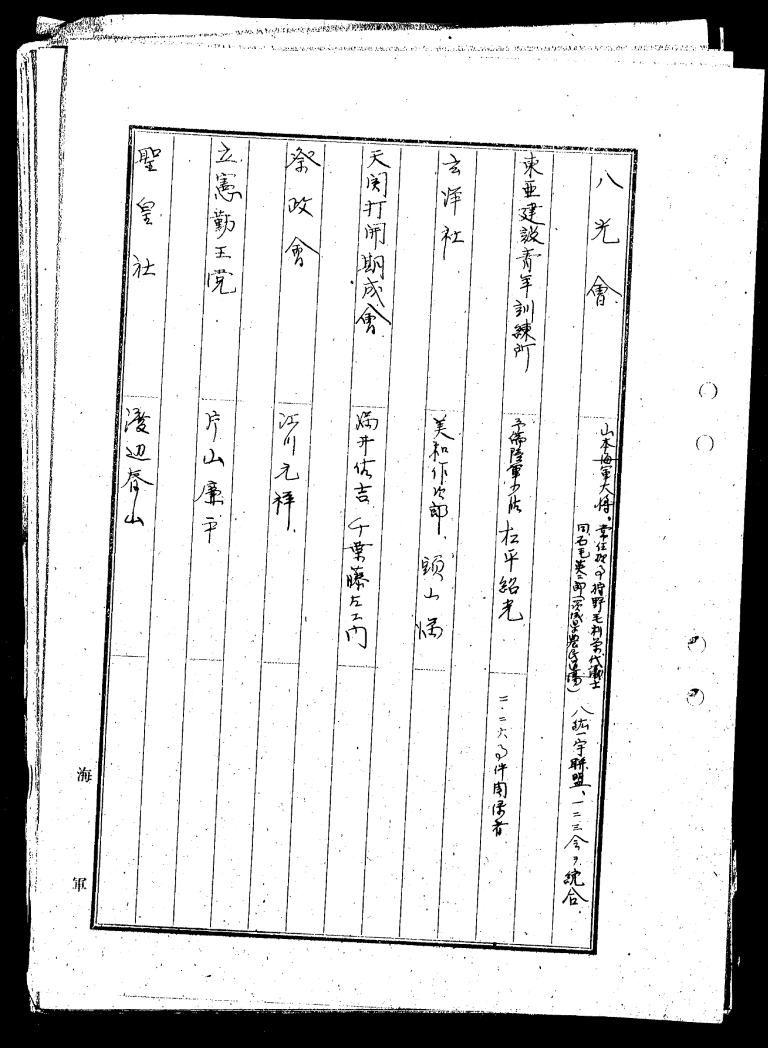 八光會
山本海軍大将。常任理事 狩野毛利 代議士
同 石毛英三郎(茨城県農民道場)
八紘一宇聯盟、一二三会ヲ統合.
東亜建設青年訓練所
予備陸軍少佐 松平紹光
二.二六事件関係者
玄洋社
美和作次郎. 頭山満
天関打開期成會
満井佐吉 千葉藤左ヱ門
祭政會
江川元祥
立憲勤王党
片山廉平
聖皇社
渡辺春山
海軍